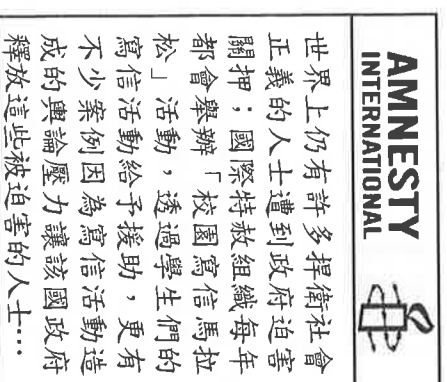 AMNESTY
INTERNATIONAL
世界上仍有許多捍衛社會
正義的人士遭到政府迫害
關押；國際特赦組織每年
都會舉辦「校園寫信馬拉
松」活動，透過學生們的
寫信活動給予援助，更有
不少案例因為寫信活動造
成的輿論壓力讓該國政府
釋放這些被迫害的人士…